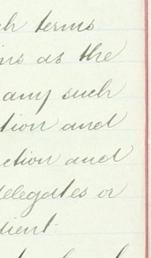 ch terms
ns as the
any such
tion and
ction and
delegates or
dient.